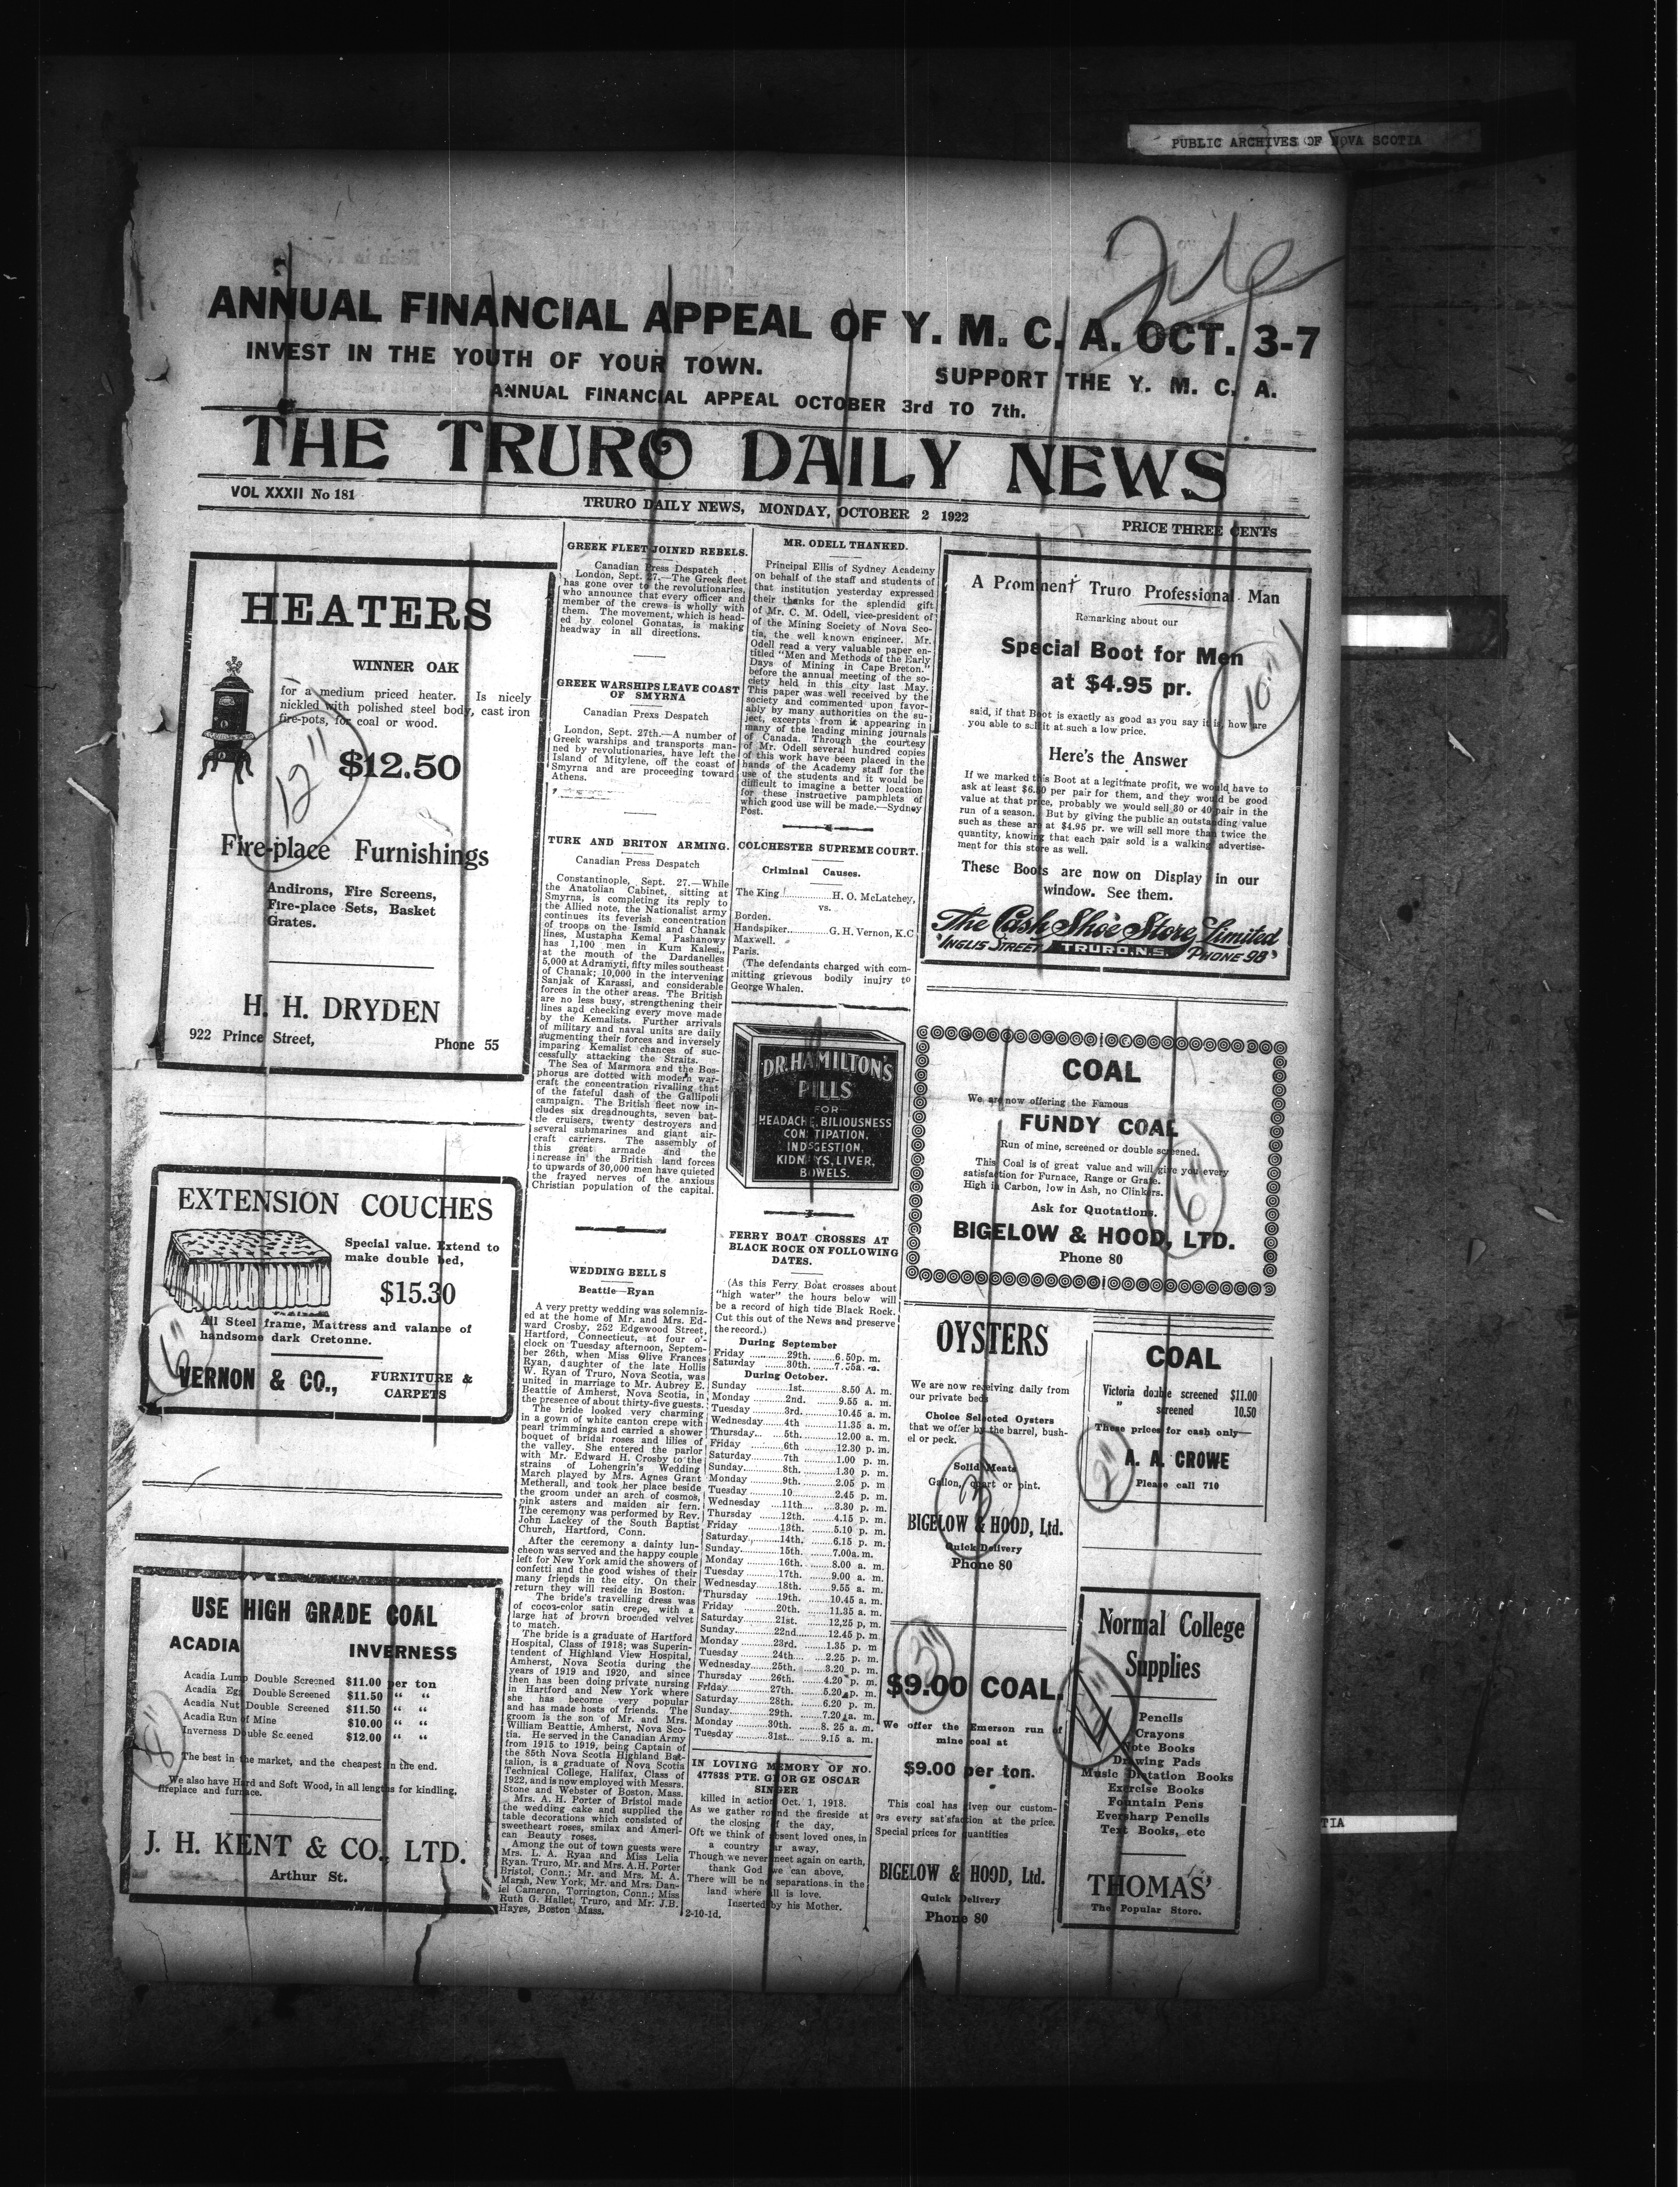 PUBLIC ARCHIVES OF NOVA SCOTIA
ANNUAL FINANCIAL APPEAL OF Y. M. C. A. OCT. 3-7
INVEST IN THE YOUTH OF YOUR TOWN.
SUPPORT THE Y. M. C. A.
ANNUAL FINANCIAL APPEAL OCTOBER 3rd TO 7th.
THE TRURO DAILY NEWS
VOL XXXII No 181
TRURO DAILY NEWS, MONDAY, OCTOBER 2 1922
PRICE THREE CENTS
HEATERS
WINNER OAK
for a medium priced heater. Is nicely
nickled with polished steel body, cast iron
fire-pots, for coal or wood.
12"
$12.50
Fire-place Furnishings
Andirons, Fire Screens,
Fire-place Sets, Basket
Grates.
H. H. DRYDEN
922 Prince Street,
Phone 55
EXTENSION COUCHES
Special value. Extend to
make double bed,
$15.30
All Steel frame, Mattress and valance of
handsome dark Cretonne.
6"
VERNON & CO.,
FURNITURE &
CARPETS
USE HIGH GRADE COAL
ACADIA INVERNESS
Acadia Lump Double Screened $11.00 per ton
Acadia Egg Double Screened $11.50 " "
Acadia Nut Double Screened $11.50 " "
Acadia Run of Mine $10.00 " "
Inverness Double Screened $12.00 " "
8"
The best in the market, and the cheapest in the end.
We also have Hard and Soft Wood, in all lengths for kindling,
fireplace and furnace.
J. H. KENT & CO., LTD.
Arthur St.
GREEK FLEET JOINED REBELS.
Canadian Press Despatch
London, Sept. 27.—The Greek fleet
has gone over to the revolutionaries,
who announce that every officer and
member of the crews is wholly with
them. The movement, which is head-
ed by colonel Gonatas, is making
headway in all directions.
GREEK WARSHIPS LEAVE COAST
OF SMYRNA
Canadian Prexs Despatch
London, Sept. 27th.—A number of
Greek warships and transports man-
ned by revolutionaries, have left the
Island of Mitylene, off the coast of
Smyrna and are proceeding toward
Athens.
TURK AND BRITON ARMING.
Canadian Press Despatch
Constantinople, Sept. 27.—While
the Anatolian Cabinet, sitting at
Smyrna, is completing its reply to
the Allied note, the Nationalist army
continues its feverish concentration
of troops on the Ismid and Chanak
lines, Mustapha Kemal Pashanowy
has 1,100 men in Kum Kalesi,
at the mouth of the Dardanelles
5,000 at Adramyti, fifty miles southeast
of Chanak; 10,000 in the intervening
Sanjak of Karassi, and considerable
forces in the other areas. The British
are no less busy, strengthening their
lines and checking every move made
by the Kemalists. Further arrivals
of military and naval units are daily
augmenting their forces and inversely
imparing Kemalist chances of suc-
cessfully attacking the Straits.
The Sea of Marmora and the Bos-
phorus are dotted with modern war-
craft the concentration rivalling that
of the fateful dash of the Gallipoli
campaign. The British fleet now in-
cludes six dreadnoughts, seven bat-
tle cruisers, twenty destroyers and
several submarines and giant air-
craft carriers. The assembly of
this great armade and the
increase in the British land forces
to upwards of 30,000 men have quieted
the frayed nerves of the anxious
Christian population of the capital.
WEDDING BELLS
Beattie—Ryan
A very pretty wedding was solemniz-
ed at the home of Mr. and Mrs. Ed-
ward Crosby, 252 Edgewood Street,
Hartford, Connecticut, at four o'-
clock on Tuesday afternoon, Septem-
ber 26th, when Miss Olive Frances
Ryan, daughter of the late Hollis
W. Ryan of Truro, Nova Scotia, was
united in marriage to Mr. Aubrey E.
Beattie of Amherst, Nova Scotia, in
the presence of about thirty-five guests.
The bride looked very charming
in a gown of white canton crepe with
pearl trimmings and carried a shower
boquet of bridal roses and lilies of
the valley. She entered the parlor
with Mr. Edward H. Crosby to the
strains of Lohengrin's Wedding
March played by Mrs. Agnes Grant
Metherall, and took her place beside
the groom under an arch of cosmos,
pink asters and maiden air fern.
The ceremony was performed by Rev.
John Lackey of the South Baptist
Church, Hartford, Conn.
After the ceremony a dainty lun-
cheon was served and the happy couple
left for New York amid the showers of
confetti and the good wishes of their
many friends in the city. On their
return they will reside in Boston.
The bride's travelling dress was
of cocoa-color satin crepe, with a
large hat of brown brocaded velvet
to match.
The bride is a graduate of Hartford
Hospital, Class of 1918; was Superin-
tendent of Highland View Hospital,
Amherst, Nova Scotia during the
years of 1919 and 1920, and since
then has been doing private nursing
in Hartford and New York where
she has become very popular
and has made hosts of friends. The
groom is the son of Mr. and Mrs.
William Beattie, Amherst, Nova Sco-
tia. He served in the Canadian Army
from 1915 to 1919, being Captain of
the 85th Nova Scotia Highland Bat-
talion, is a graduate of Nova Scotia
Technical College, Halifax, Class of
1922, and is now employed with Messrs.
Stone and Webster of Boston, Mass.
Mrs. A. H. Porter of Bristol made
the wedding cake and supplied the
table decorations which consisted of
sweetheart roses, smilax and Ameri-
can Beauty roses.
Among the out of town guests were
Mrs. L. A. Ryan and Miss Lelia
Ryan, Truro, Mr. and Mrs. A.H. Porter
Bristol, Conn.; Mr. and Mrs. M. A.
Marsh, New York, Mr. and Mrs. Dan-
iel Cameron, Torrington, Conn.; Miss
Ruth G. Hallet, Truro, and Mr. J.B.
Hayes, Boston Mass.
MR. ODELL THANKED.
Principal Ellis of Sydney Academy
on behalf of the staff and students of
that institution yesterday expressed
their thanks for the splendid gift
of Mr. C. M. Odell, vice-president of
of the Mining Society of Nova Sco-
tia, the well known engineer. Mr.
Odell read a very valuable paper en-
titled "Men and Methods of the Early
Days of Mining in Cape Breton."
before the annual meeting of the so-
ciety held in this city last May.
This paper was well received by the
society and commented upon favor-
ably by many authorities on the su-
ject, excerpts from it appearing in
many of the leading mining journals
of Canada. Through the courtesy
of Mr. Odell several hundred copies
of this work have been placed in the
hands of the Academy staff for the
use of the students and it would be
difficult to imagine a better location
for these instructive pamphlets of
which good use will be made.—Sydney
Post.
COLCHESTER SUPREME COURT.
Criminal Causes.
The King..........H. O. McLatchey,
vs.
Borden.
Handspiker..........G. H. Vernon, K.C
Maxwell.
Paris.
(The defendants charged with com-
mitting grievous bodily inujry to
George Whalen.
DR. HAMILTON'S
PILLS
FOR
HEADACHE, BILIOUSNESS
CONSTIPATION,
INDIGESTION,
KIDNEYS, LIVER,
BOWELS.
FERRY BOAT CROSSES AT
BLACK ROCK ON FOLLOWING
DATES.
(As this Ferry Boat crosses about
"high water" the hours below will
be a record of high tide Black Rock.
Cut this out of the News and preserve
the record.)
During September
Friday ........29th........6.50p. m.
Saturday ........30th........7.35a. m.
During October.
Sunday ........1st........8.50 A. m.
Monday ........2nd. ........9.55 a. m.
Tuesday ........3rd........10.45 a. m.
Wednesday......4th ........11.35 a. m.
Thursday... ....5th........12.00 a. m.
Friday ........6th ........12.30 p. m.
Saturday ........7th ........1.00 p. m.
Sunday........8th........1.30 p. m.
Monday ........9th........2.05 p. m
Tuesday ........10........2.45 p. m.
Wednesday ....11th........3.30 p. m.
Thursday ........12th........4.15 p. m.
Friday ........13th........5.10 p. m.
Saturday........14th. ........6.15 p. m.
Sunday........15th........7.00a. m.
Monday ........16th........8.00 a. m.
Tuesday ........17th........9.00 a. m.
Wednesday......18th ........9.55 a. m.
Thursday ........19th........10.45 a. m.
Friday ........20th........11.35 a. m.
Saturday........21st........12.25 p. m.
Sunday........22nd........12.45 p. m.
Monday ........23rd........1.35 p. m
Tuesday ........24th........2.25 p. m.
Wednesday......25th........3.20 p. m.
Thursday ........26th........4.20 p. m.
Friday........27th........5.20 p. m.
Saturday ........28th........6.20 p. m.
Sunday........29th........7.20 a. m.
Monday ........30th........8. 25 a. m.
Tuesday ........31st........9.15 a. m.
IN LOVING MEMORY OF NO.
477838 PTE. GEORGE OSCAR
SINGER
killed in action Oct. 1, 1918.
As we gather round the fireside at
the closing of the day,
Oft we think of absent loved ones, in
a country far away,
Though we never meet again on earth,
thank God we can above,
There will be no separations in the
land where all is love.
Inserted by his Mother.
2-10-1d.
A Prominent Truro Professional Man
Remarking about our
Special Boot for Men
at $4.95 pr.
10"
said, if that Boot is exactly as good as you say it is, how are
you able to sell it at such a low price.
Here's the Answer
If we marked this Boot at a legitimate profit, we would have to
ask at least $6.50 per pair for them, and they would be good
value at that price, probably we would sell 30 or 40 pair in the
run of a season. But by giving the public an outstanding value
such as these are at $4.95 pr. we will sell more than twice the
quantity, knowing that each pair sold is a walking advertise-
ment for this store as well.
These Boots are now on Display in our
window. See them.
The Cash Shoe Store, Limited
"INGLIS STREET TRURO.N.S. PHONE 98"
COAL
We are now offering the Famous
FUNDY COAL
Run of mine, screened or double screened.
This Coal is of great value and will give you every
satisfaction for Furnace, Range or Grate.
High in Carbon, low in Ash, no Clinkers.
6"
Ask for Quotations.
BIGELOW & HOOD, LTD.
Phone 80
OYSTERS
We are now receiving daily from
our private beds
Choice Selected Oysters
that we offer by the barrel, bush-
el or peck.
Solid Meats
Gallon, quart or pint.
BIGELOW & HOOD, Ltd.
Quick Delivery
Phone 80
COAL
Victoria double screened $11.00
" screened 10.50
These prices for cash only—
2"
A. A. CROWE
Please call 710
$9.00 COAL.
We offer the Emerson run of
mine coal at
$9.00 per ton.
This coal has given our custom-
ers every satisfaction at the price.
Special prices for quantities
BIGELOW & HOOD, Ltd.
Quick Delivery
Phone 80
Normal College
Supplies
Pencils
Crayons
Note Books
Drawing Pads
Music Dictation Books
Exercise Books
Fountain Pens
Eversharp Pencils
Text Books, etc
THOMAS'
The Popular Store.
TIA